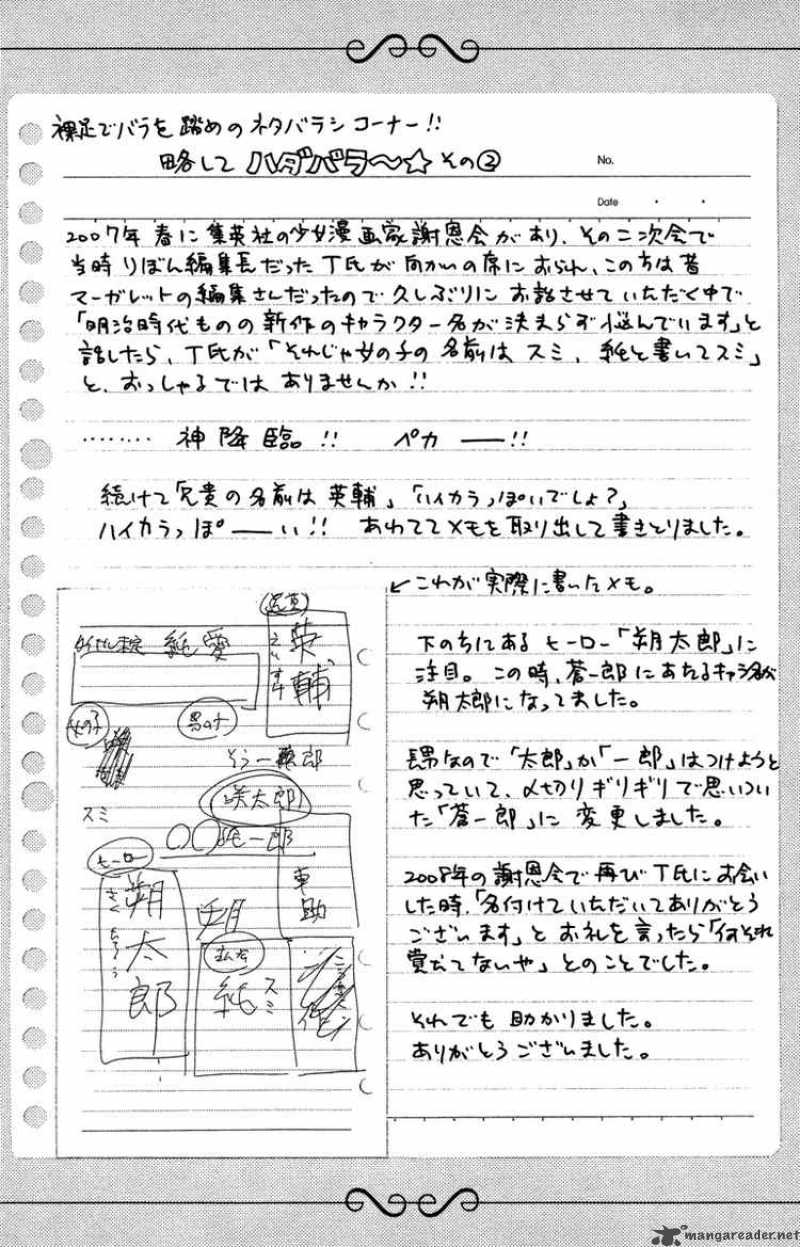 裸足でバラを踏めのネタバラシコーナー!!
略して ハダバラ〜☆ その②
No.
Date
2007年 春に 集英社の少女漫画家謝恩会があり、その二次会で
当時 りぼん編集長だった T氏が 向かいの席におられ、この方は昔
マーガレットの編集さんだったので 久しぶりに お話させていただく中で
「明治時代ものの新作のキャラクター名が決まらず悩んでいます」と
話したら、T氏が「それじゃ女の子の名前は スミ、純と書いてスミ」
と、おっしゃるではありませんか!!
‥‥‥‥ 神降臨!! ペカ——!!
続けて「兄貴の名前は 英輔」「ハイカラっぽいでしょ?」
ハイカラっぽ——い!! あわててメモを取り出して書きとりました。
←これが実際に書いたメモ。
下の方にある ヒーロー「朔太郎」に
注目。この時、蒼一郎にあたるキャラ名が
朔太郎になってました。
長男なので「太郎」か「一郎」はつけようと
思っていて、〆切りギリギリで思いつい
た「蒼一郎」に 変更しました。
2008年の謝恩会で 再び T氏にお会い
した時、「名付けていただいてありがとう
ございます」と お礼を言ったら「何それ
覚えてないや」とのことでした。
それでも 助かりました。
ありがとうございました。
タイトル未定 純愛
兄貴
英輔
えいすけ
女の子
男の子
スミ
そう一郎
咲太郎
〇〇純一郎
ヒーロー
朔太郎
さくたろう
朔
車助
純
スミ
mangareader.net